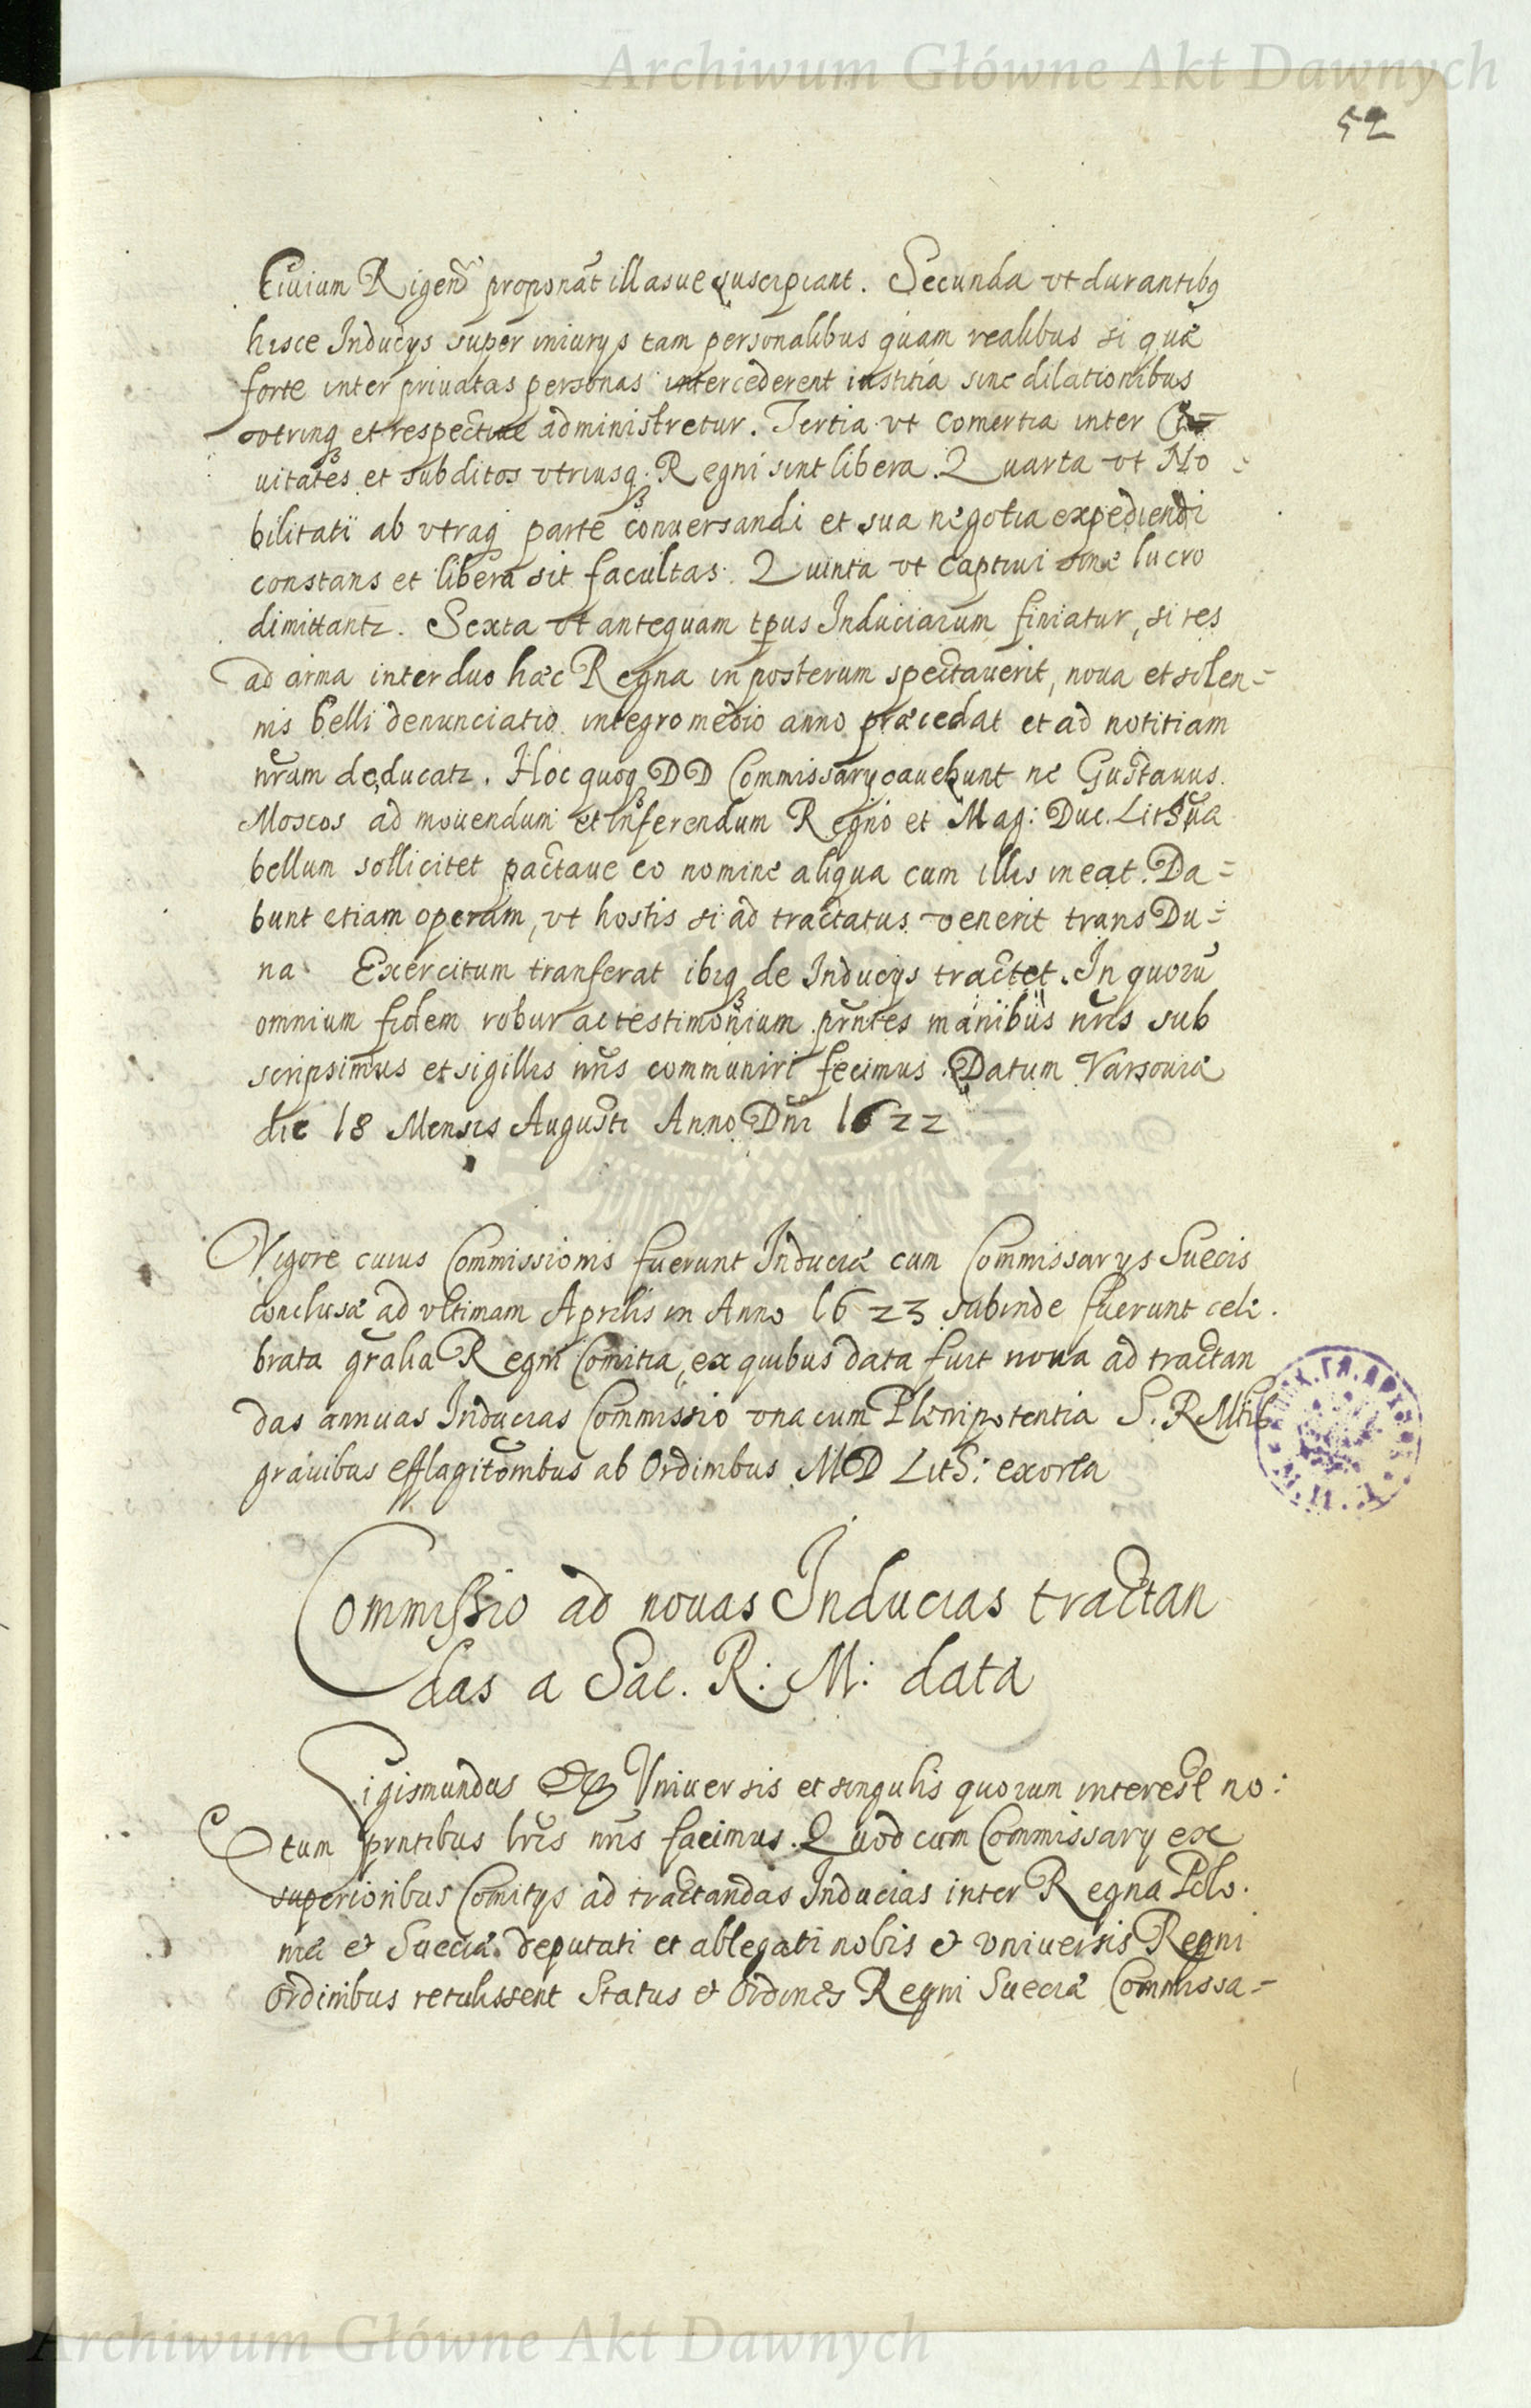 Archiwum Główne Akt Dawnych
52
Ciuium Rigen͂ proponãt illasue suscipiant. Secunda vt durantibꝯ
hisce Inducijs super iniurijs tam personalibus quam realibus si quæ
forte inter priuatas personas intercederent iustitia sine dilationibus
vtrinqꝫ et respectiue administretur. Tertia vt Comertia inter Ci=
uitates et subditos vtriusqꝫ Regni sint libera. Quarta vt No=
bilitati ab vtraqꝫ parte conuersandi et sua negotia expediendi
constans et libera sit facultas. Quinta vt Captiui sine lucro
dimittantꝛ. Sexta vt antequam tp̱us Induciarum finiatur, si res
ad arma inter duo hæc Regna in posterum spectauerit, noua et solen=
nis belli denunciatio integro medio anno præcedat et ad notitiam
nr̃am deducatꝛ. Hoc quoqꝫ DD Commissary cauebunt ne Gustauus
Moscos ad mouendum et inferendum Regno et Mag: Duc. Lithua
bellum sollicitet pactaue eo nomine aliqua cum illis ineat. Da=
bunt etiam operam, vt hostis si ad tractatus venerit trans Du=
na Exercitum tranferat ibiqꝫ de Inducijs tractet. In quorũ
omnium fidem robur ac testimonium pr̃ntes manibus nr̃is sub
scripsimus et sigillis nr̃is communiri fecimus. Datum Varsouiæ
die 18 Mensis Augusti Anno Dn̄i 1622
Vigore cuius Commissionis fuerunt Induciæ cum Commissarys Suecis
conclusæ ad vltimam Aprilis in Anno 1623 subinde fuerunt cele.
brata gr̃alia Regni Comitia, ex quibus data fuit noua ad tractan
das annuas Inducias Commissio vna cum Plenipotentia S. R Mtis
grauibus efflagitõnibus ab Ordinibus MD Lith: exorta
Commissio ad nouas Inducias tractan
das a Sac. R: M: data
Sigismundus Uniuersis et singulis quorum interest no:
tum prntibus lr̃is nr̃is facimus. Quod cum Commissary ex
superioribus Comitijs ad tractandas Inducias inter Regna Polo.
niæ et Sueciæ deputati et ablegati nobis et vniuersis Regni
Ordinibus retulissent Status et Ordines Regni Sueciæ Commissa=
Archiwum Główne Akt Dawnych